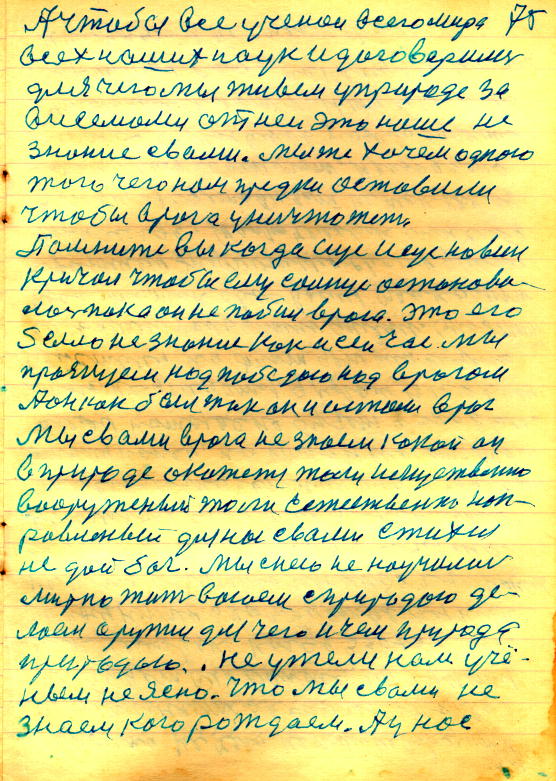 А чтобы все ученои всего мира 75
всех наших наук и договорим
для чего мы живем у природе за
висемоми от неи это наше не
знание свами. Мы же хочем одного
того чего ном предки оставили
чтобы врога уничтожет.
Помните вы когда Исус новин
кричал чтобы ему солнце останови
лос пока он не побил врога. Это его
было не знание как и сеичас. Мы
празнуем над победою над врогом
А он как был так он и остался враг
Мы свами врога не знаем какой он
в природе окажеть толи искуственно
вооруженый толи естественно нап-
равленый для нас свами стихия
не дай бог. Мы снею не научилис
мирно жит воюем с природою де-
лаем оружия для чего и чем природа
природою. . не ужели нам учё-
ным не ясно. Что мы свами не
знаем кого рождаем. А у нас